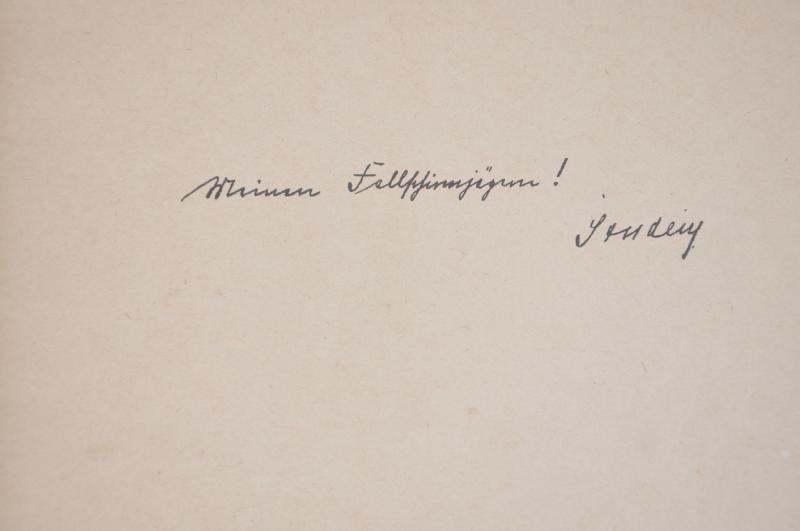 Meinen Fallschirmjägern!
Student